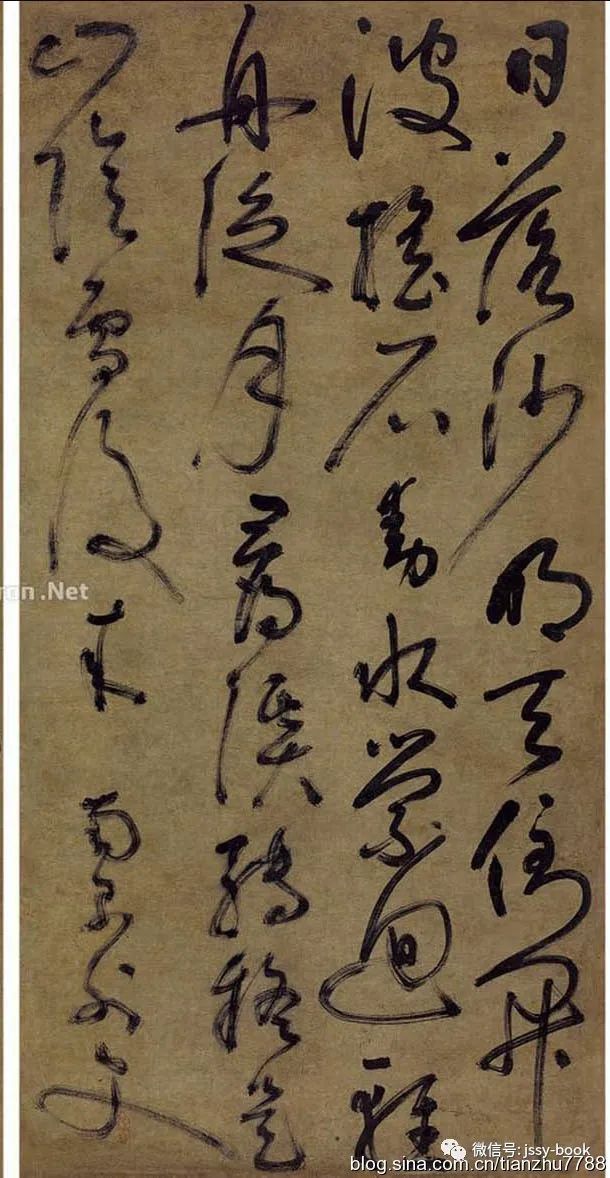 日落沙明天倒開
波搖石動水縈迴輕
舟泛月尋溪轉疑是
山陰雪後來
.Net
微信号: jssy-book
blog.sina.com.cn/tianzhu7788